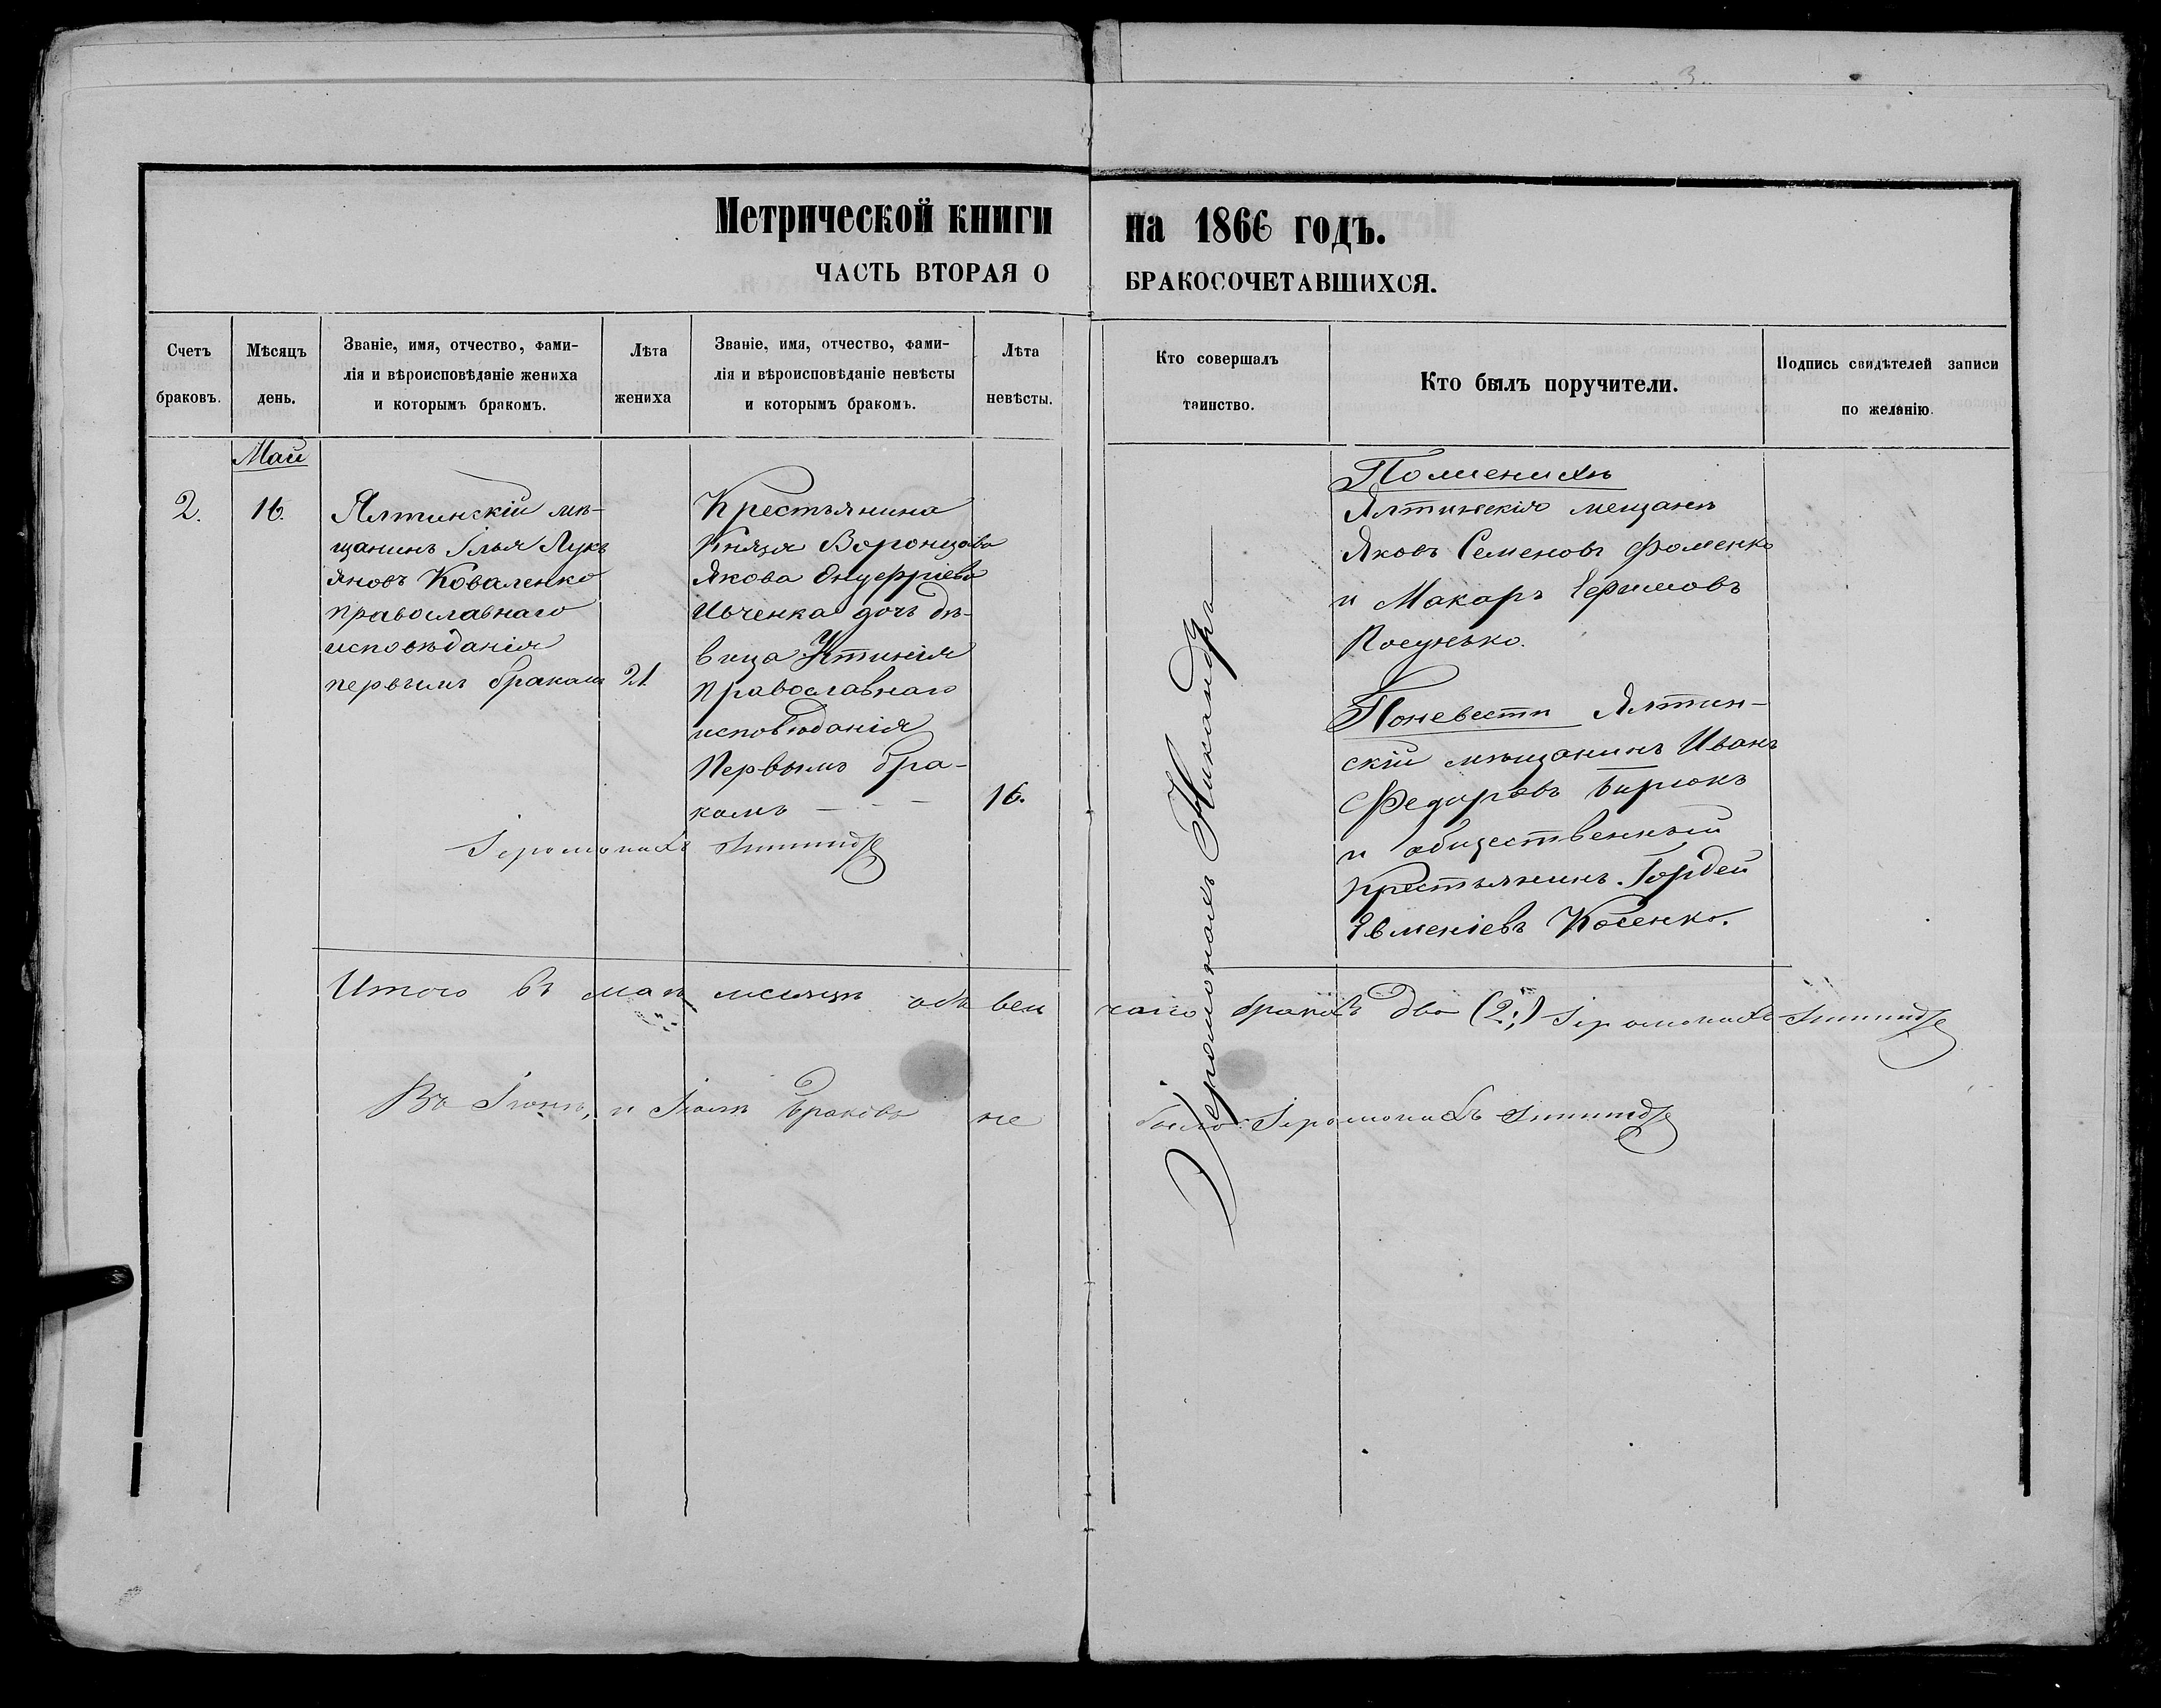 Метрической книги на 1866 годъ.
ЧАСТЬ ВТОРАЯ О БРАКОСОЧЕТАВШИХСЯ.
Счетъ браковъ.
Мѣсяцъ день.
Званіе, имя, отчество, фами-
лія и вѣроисповѣданіе жениха
и которымъ бракомъ.
Лѣта жениха
Званіе, имя, отчество, фами-
лія и вѣроисповѣданіе невѣсты
и которымъ бракомъ.
Лѣта невѣсты.
Кто совершалъ таинство.
Кто былъ поручители.
Подпись свидѣтелей записи
по желанію.
Май
2.
16.
Ялтинскій мѣ-
щанинъ Илья Лукь
яновъ Коваленко
православнаго
исповѣданія
первымъ бракомъ
21.
Крестьянина
Князя Воронцова
Якова Онуфріева
Ивченка дочь дѣ-
вица Устинія
православнаго
исповѣданія
Первымъ бра-
комъ
16.
Іеромонахъ
Іеромонахъ Никандръ
По женихѣ
Ялтинскія мещане
Яковъ Семеновъ Фоменко
и Макаръ Ефимовъ
По невести Ялтин-
скій мѣщанинъ Иванъ
Федоровъ Бирюкъ
и общественный
крестьянинъ Гордей
Евменіевъ Косенко.
Итого въ маѣ месяцѣ обвен чано браковъ два (2.) Іеромонахъ
Въ Іюнѣ, и Іюлѣ браковъ не было. Іеромонахъ